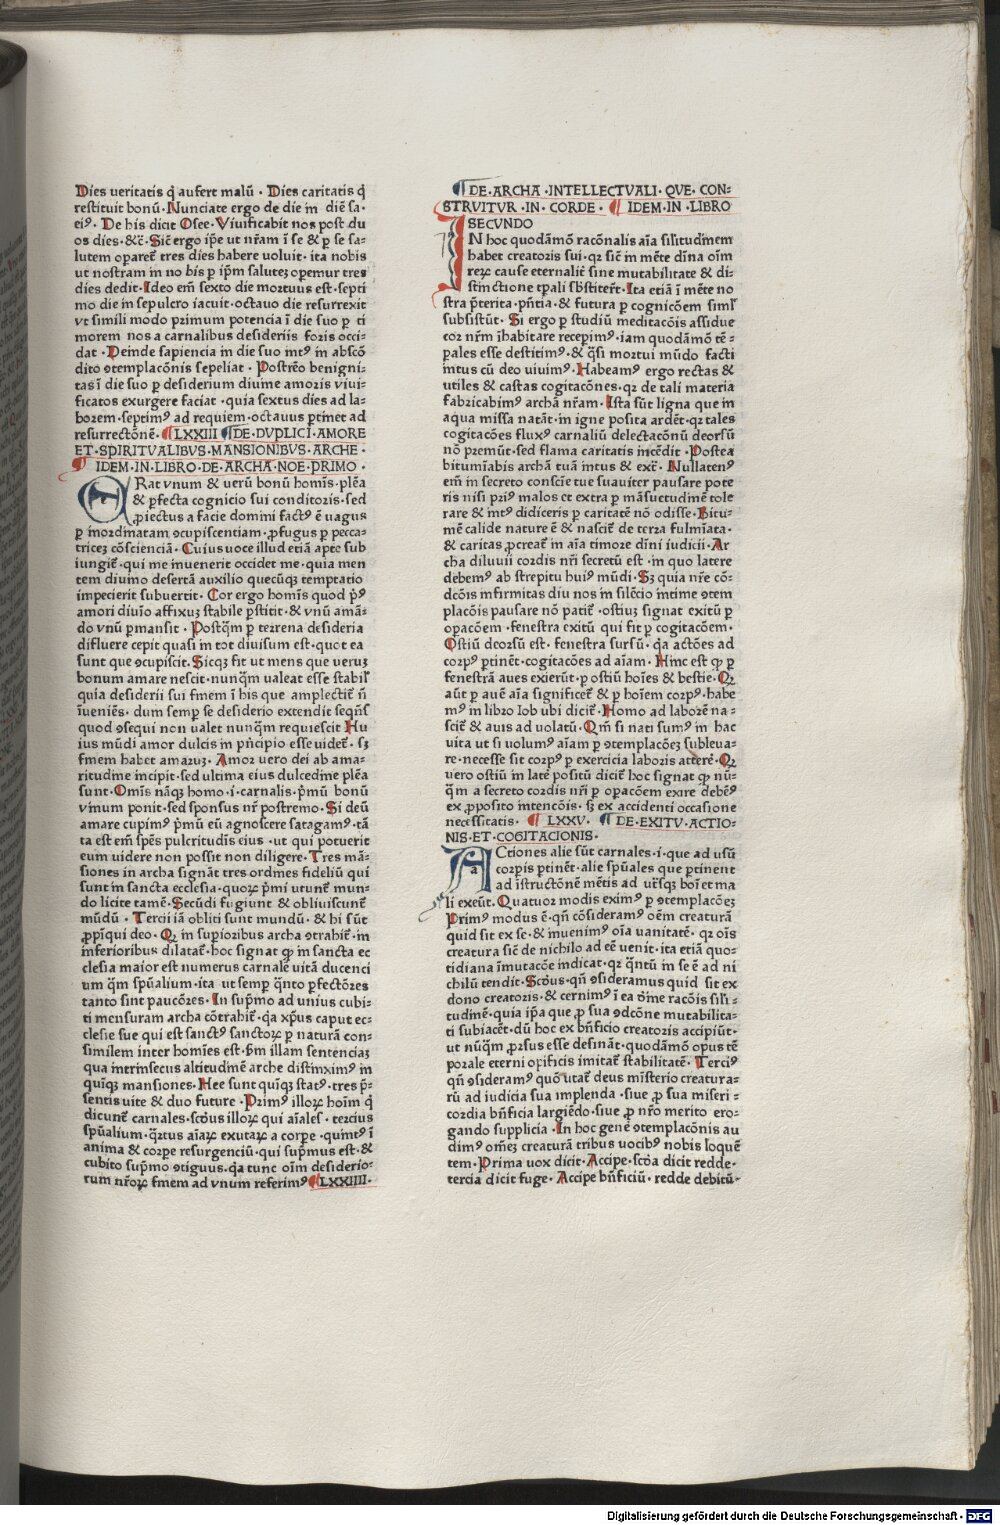 Dies ueritatis q̃ aufert malū · Dies caritatis q̃
restituit bonū · Nunciate ergo de die in diē sa-
eiꝰ · De his dicit Osee · Viuificabit nos post du
os dies · &c̃ · Sic̃ ergo ip̃e ut nr̃am ī se & ꝑ se sa-
lutem oparet̃ tres dies habere uoluit · ita nobis
ut nostram in no bis ꝑ ip̃m salutez opemur tres
dies dedit · Ideo em̃ sexto die mortuus est · septi
mo die in sepulcro iacuit · octauo die resurrexit
vt simili modo primum potencia ī die suo ꝑ ti
morem nos a carnalibus desideriis foris occi-
dat · Deinde sapiencia in die suo int̃ꝰ in abscō
dito ꝯtemplacōnis sepeliat · Postrēo benigni-
tas ī die suo ꝑ desiderium diuine amoris viui-
ficatos exurgere faciat · quia sextus dies ad la-
borem · septimꝰ ad requiem · octauus ptinet ad
resurrectōnē · ¶ LXXIII ¶ DE · DVPLICI · AMORE
ET · SPIRITVALIBVS · MANSIONIBVS · ARCHE ·
¶ IDEM · IN · LIBRO · DE · ARCHA · NOE · PRIMO ·
ORat vnum & uerū bonū homīs · plēa
& ꝑfecta cognicio sui conditoris · sed
ꝓiectus a facie domini factꝰ ē uagus
ꝑ inordinatam ꝯcupiscentiam · ꝓfugus ꝑ pecca-
tricez cōscienciā · Cuius uoce illud etiā apte sub
iungit̃ · qui me inuenerit occidet me · quia men
tem diuino desertā auxilio quecūqꝫ temptatio
impecierit subuertit · Cor ergo homīs quod pꝰ
amori diuīo affixuꝫ stabile ꝑstitit · & vnū amā-
do vnū ꝑmansit · Postq̃m ꝑ terrena desideria
difluere cepit quasi in tot diuisum est · quot ea
sunt que ꝯcupiscit · Sicqꝫ fit ut mens que ueruꝫ
bonum amare nescit · nunq̃m ualeat esse stabil̃
quia desiderii sui finem ī his que amplectit̃ ñ
īueniēs · dum semp̱ se desiderio extendit seqñs
quod ꝯsequi non ualet nunq̃m requiescit Hu
ius mūdi amor dulcis in pñcipio esse uidet̃ · sꝫ
finem habet amaruꝫ · Amor uero dei ab ama-
ritudine incipit · sed ultima eius dulcedine plēa
sunt · Omīs nāqꝫ homo · i · carnalis · pmū bonū
vīnum ponit · sed sponsus nr̃ postremo · Si deū
amare cupimꝰ pmū eū agnoscere satagamꝰ · tā
ta est em̃ spēs pulcritudīs eius · ut qui potuerit
eum uidere non possit non diligere · Tres mā-
siones in archa signāt tres ordines fideliū qui
sunt in sancta ecclesia · quoꝝ pmi utunt̃ mun-
do licite tamē · Secūdi fugiunt & obliuiscunt̃
mūdū · Tercii iā obliti sunt mundū · & hi sūt
ꝓpīqui deo · Qꝫ in supioribus archa ꝯtrahit̃ · in
inferioribus dilatat̃ · hoc signat ꝙ in sancta ec
clesia maior est numerus carnalē uitā ducenci
um q̃m sp̃ualium · ita ut semp̱ q̃nto ꝑfectōres
tanto sint paucōres · In supmo ad unius cubi-
ti mensuram archa cōtrahit̃ · q̃a xp̃us caput ec-
clesie sue qui est sanctꝰ sanctoꝝ ꝑ naturā con-
similem inter homīes est · s̃m illam sentenciaꝫ
qua intrinsecus altitudinē arche distinximꝰ in
quīqꝫ mansiones · Hee sunt quīqꝫ statꝰ · tres p̄-
sentis uite & duo future · Primꝰ illoꝝ hoīm q̃
dicunt̃ carnales · scd̄us illoꝝ qui aīales · tercius
sp̃ualium · q̃rtus aīaꝝ exutaꝝ a corꝑe · quintꝰ ī
anima & corꝑe resurgenciū · qui supmus est · &
cubito supmo ꝯtiguus · q̃a tunc oīm desiderio-
rum nr̃oꝝ finem ad vnum referimꝰ ¶ LXXIIII ·
¶ DE · ARCHA · INTELLECTVALI · QVE · CON-
STRVITVR · IN · CORDE · ¶ IDEM · IN · LIBRO
SECVNDO
IN hoc quodāmō racōnalis aīa silitudinem
habet creatoris sui · qꝛ sic̃ in mēte diīna oīm
reꝝ cause eternalit̃ sine mutabilitate & di-
stinctione tꝑali sb̃stiter̃t · Ita etiā ī mēte no
stra p̄terita · pñtia · & futura ꝑ cognicōem siml̃
subsistūt · Si ergo ꝑ studiū meditacōis assidue
cor nr̃m īhabitare recepimꝰ · iam quodāmō tē-
pales esse destitimꝰ · & q̃si mortui mūdo facti
intus cū deo viuimꝰ · Habeamꝰ ergo rectas &
utiles & castas cogitacōnes · qꝛ de tali materia
fabricabimꝰ archā nr̃am · Ista sūt ligna que in
aqua missa natāt · in igne posita ardēt · qꝛ tales
cogitacōes fluxꝰ carnaliū delectacōnū deorsū
nō premūt · sed flama caritatis incēdit · Postea
bitumīabis archā tuā intus & extr̃ · Nullatenꝰ
em̃ in secreto consciē tue suauiter pausare pote
ris nisi priꝰ malos et extra ꝑ māsuetudinē tole
rare & intꝰ didiceris ꝑ caritatē nō odisse · Bitu-
mē calide nature ē & nascit̃ de terra fulmīata ·
& caritas ꝓcreat̃ in aīa timore dīni iudicii · Ar
cha diluuii cordis nr̃i secretū est · in quo latere
debemꝰ ab strepitu huiꝰ mūdi · Sꝫ quia nr̃e cō-
dcōis infirmitas diu nos in silēcio intime ꝯtem
placōis pausare nō patit̃ · ostiuꝫ signat exitū ꝑ
oꝑacōem · fenestra exitū qui fit ꝑ cogitacōem ·
Ostiū deorsū est · fenestra sursū · q̃a actōes ad
corpꝰ ptinēt · cogitacōes ad aīam · Hinc est ꝙ ꝑ
fenestrā aues exierūt · ꝑ ostiū hoīes & bestie · Qꝫ
aūt ꝑ auē aīa significet̃ & ꝑ hoīem corpꝰ · habe
mꝰ in libro Iob ubi dicit̃ · Homo ad laborē na-
scit̃ & auis ad uolatū · Qm̃ si nati sumꝰ in hac
uita ut si volumꝰ aīam ꝑ ꝯtemplacōeꝫ subleua-
re · necesse sit corpꝰ ꝑ exercicia laboris atterē · Qꝫ
uero ostiū in latē positū dicit̃ hoc signat ꝙ nū-
q̃m a secreto cordis nr̃i ꝑ oꝑacōem exire debeꝰ
ex ꝓposito intencōis · sꝫ ex accidenti occasione
necessitatis · ¶ LXXV · ¶ DE · EXITV · ACTIO-
NIS · ET · COGITACIONIS ·
ACtiones alie sūt carnales · i · que ad usū
corpis ptinēt · alie sp̃uales que ptinent
ad īstructōnē mētis ad utr̃sqꝫ boī et ma
li exeūt · Quatuor modis eximꝰ ꝑ ꝯtemplacōeꝫ
Primꝰ modus ē · qñ cōsideramꝰ oēm creaturā
quid sit ex se · & inuenimꝰ oīa uanitatē · qꝛ oīs
creatura sic̃ de nichilo ad eē uenit · ita etiā quo-
tidiana īmutacōe indicat · qꝛ q̃ntū in se ē ad ni
chilū tendit · Scd̄us · qñ ꝯsideramus quid sit ex
dono creatoris · & cernimꝰ ī ea dīne racōis sili-
tudinē · quia ip̃a que ꝓ sua ꝯdcōne mutabilita-
ti subiacēt · dū hoc ex bñficio creatoris accipiūt ·
ut nūq̃m ꝓrsus esse desināt · quodāmō opus tē
porale eterni opificis imitat̃ stabilitatē · Terciꝰ
qñ ꝯsideramꝰ quō utat̃ deus misterio creatura-
rū ad iudicia sua implenda · siue ꝓ sua miseri-
cordia bñficia largiēdo · siue ꝓ nr̃o merito ero-
gando supplicia · In hoc genē ꝯtemplacōnis au
dimꝰ om̄eꝫ creaturā tribus uocibꝰ nobis loquē
tem · Prima uox dicit · Accipe · scd̄a dicit redde ·
tercia dicit fuge · Accipe bñficiū · redde debitū ·
Digitalisierung gefördert durch die Deutsche Forschungsgemeinschaft - DFG